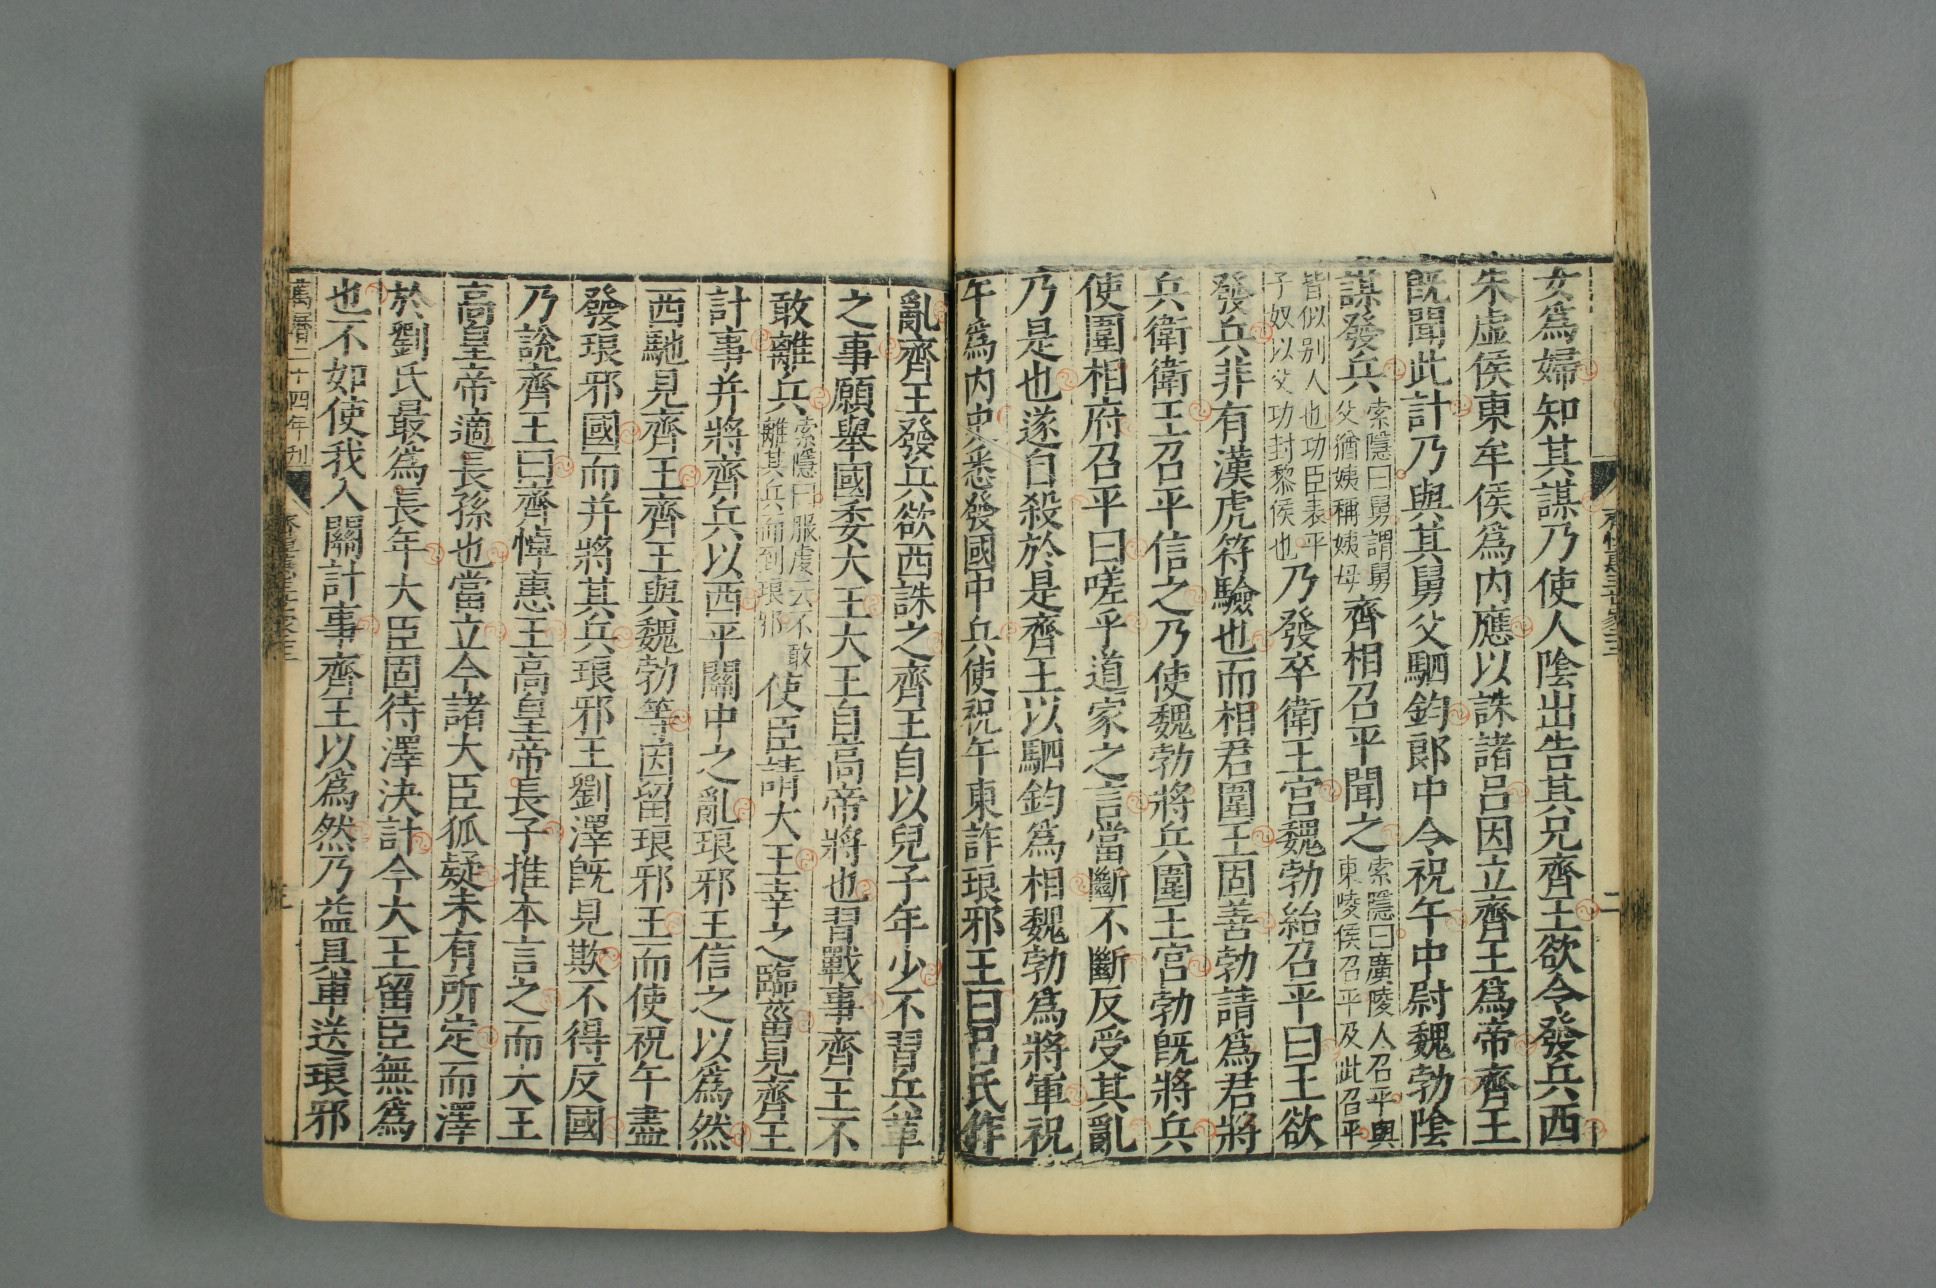 女爲婦知其謀乃使人陰出告其兄齊王欲令發兵西
朱虛侯東牟侯爲内應以誅諸呂因立齊王爲帝齊王
旣聞此計乃與其舅父駟鈞郎中令祝午中尉魏勃陰
謀發兵索隱曰舅謂舅父猶姨稱姨母齊相召平聞之索隱曰廣陵人召平與東陵侯召平及此召平
皆似别人也功臣表平子奴以父功封黎侯也乃發卒衛王宫魏勃紿召平曰王欲
發兵非有漢虎符驗也而相君圍王固善勃請爲君將
兵衛衛王召平信之乃使魏勃將兵圍王宫勃旣將兵
使圍相府召平曰嗟乎道家之言當斷不斷反受其亂
乃是也遂自殺於是齊王以駟鈞爲相魏勃爲將軍祝
午爲内史悉發國中兵使祝午東詐琅邪王曰呂氏作
亂齊王發兵欲西誅之齊王自以兒子年少不習兵革
之事願舉國委大王大王自高帝將也習戰事齊王不
敢離兵索隱曰服虔云不敢離其兵而到琅邪使臣請大王幸之臨菑見齊王
計事并將齊兵以西平關中之亂琅邪王信之以爲然
西馳見齊王齊王與魏勃等因留琅邪王而使祝午盡
發琅邪國而并將其兵琅邪王劉澤旣見欺不得反國
乃說齊王曰齊悼惠王高皇帝長子推本言之而大王
高皇帝適長孫也當立今諸大臣狐疑未有所定而澤
於劉氏最爲長年大臣固待澤決計今大王留臣無爲
也不如使我入關計事齊王以爲然乃益具車送琅邪
萬曆二十四年刊